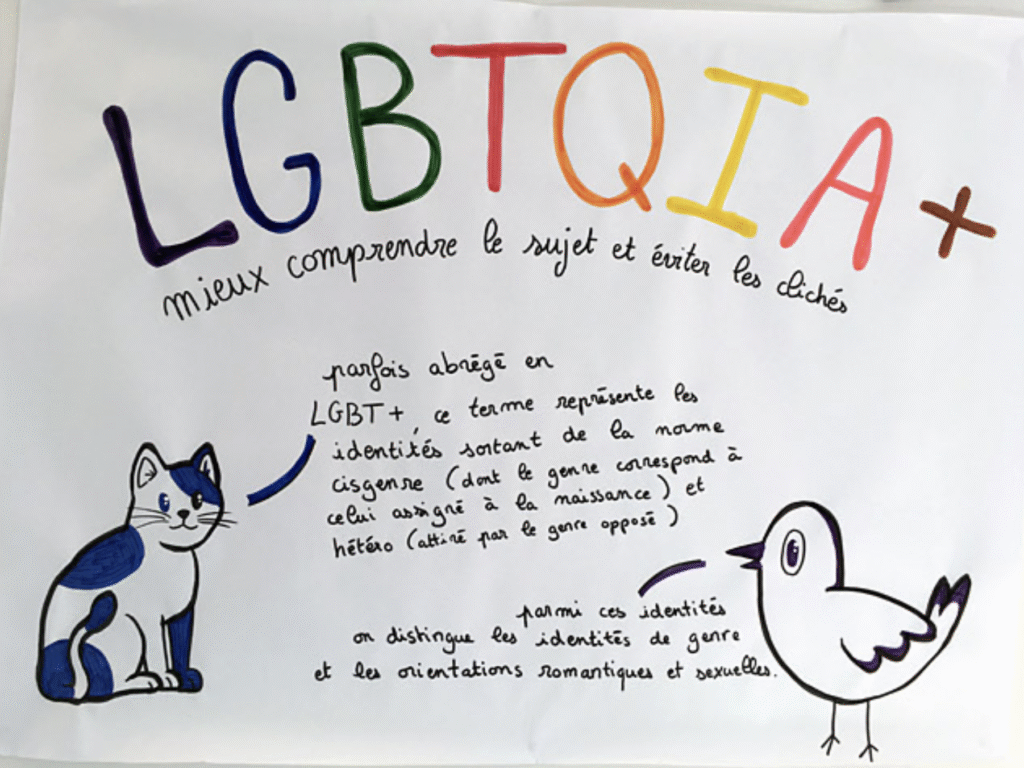 LGBTQIA+
mieux comprendre le sujet et éviter les clichés
parfois abrégé en
LGBT+, ce terme représente les
identités sortant de la norme
cisgenre (dont le genre correspond à
celui assigné à la naissance) et
hétéro (attiré par le genre opposé)
parmi ces identités
on distingue les identités de genre
et les orientations romantiques et sexuelles.